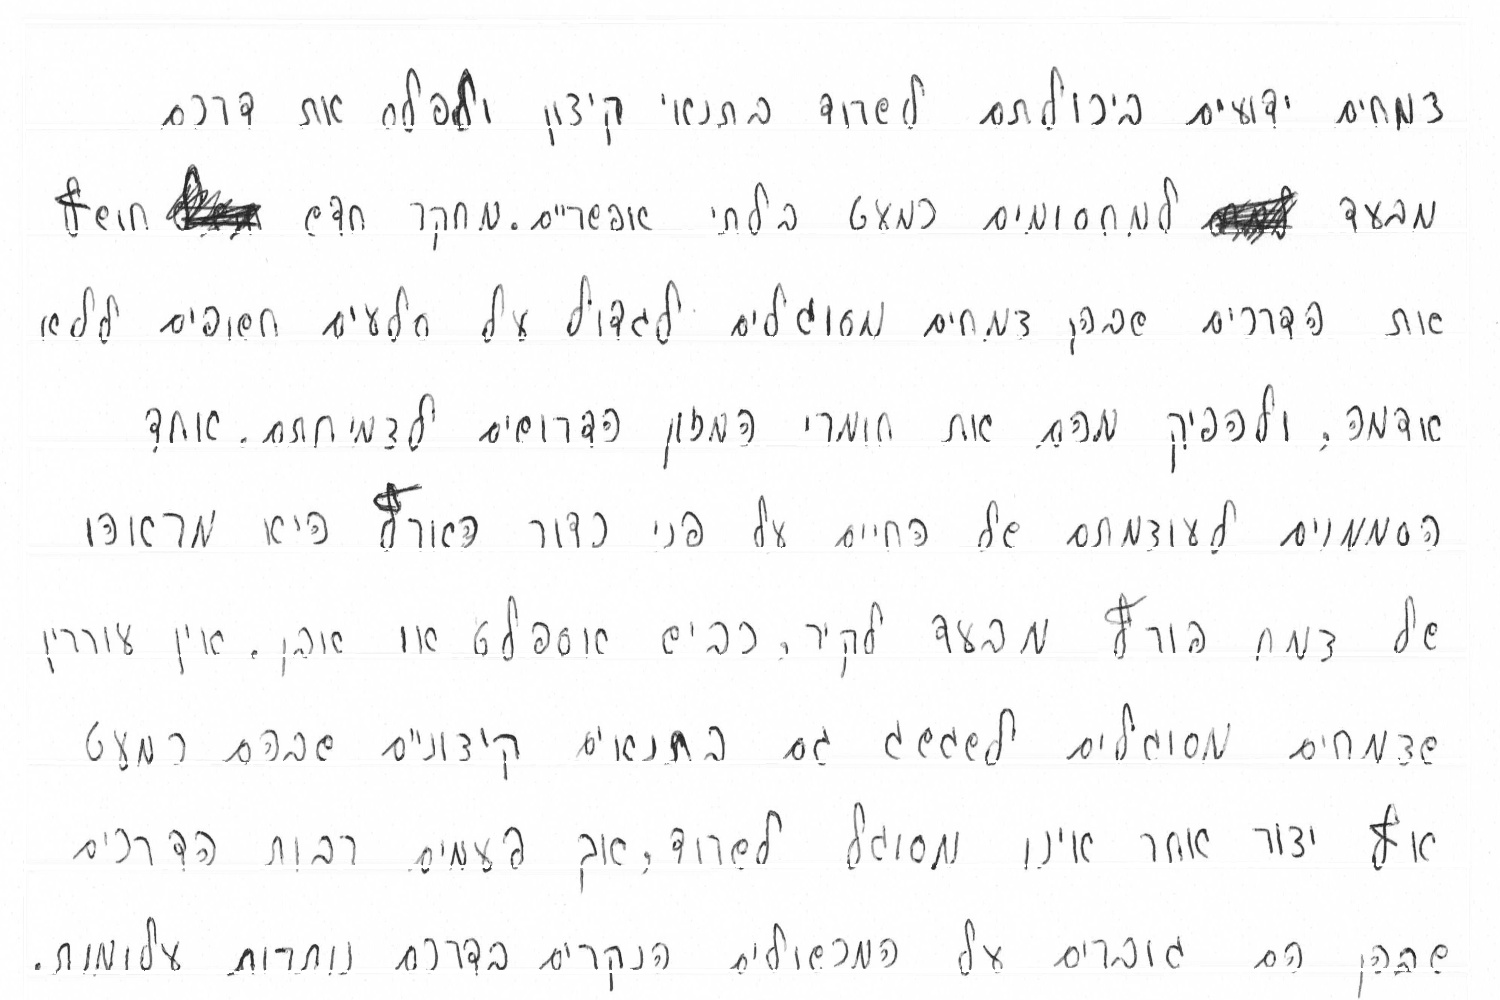 צמחים ידועים ביכולתם לשרוד בתנאי קיצון ולפלס את דרכם
מבעד למחסומים כמעט בלתי אפשריים. מחקר חדש חושף
את הדרכים שבהן צמחים מסוגלים לגדול על סלעים חשופים ללא
אדמה, ולהפיק מהם את חומרי המזון הדרושים לצמיחתם. אחד
הסממנים לעוצמתם של החיים על פני כדור הארץ היא מראהו
של צמח פורץ מבעד לקיר, כביש אספלט או אבן. אין עוררין
שצמחים מסוגלים לשגשג גם בתנאים קיצוניים שבהם כמעט
אף יצור אחר אינו מסוגל לשרוד, אך פעמים רבות הדרכים
שבהן הם גוברים על המכשולים הנקרים בדרכם נותרות עלומות.